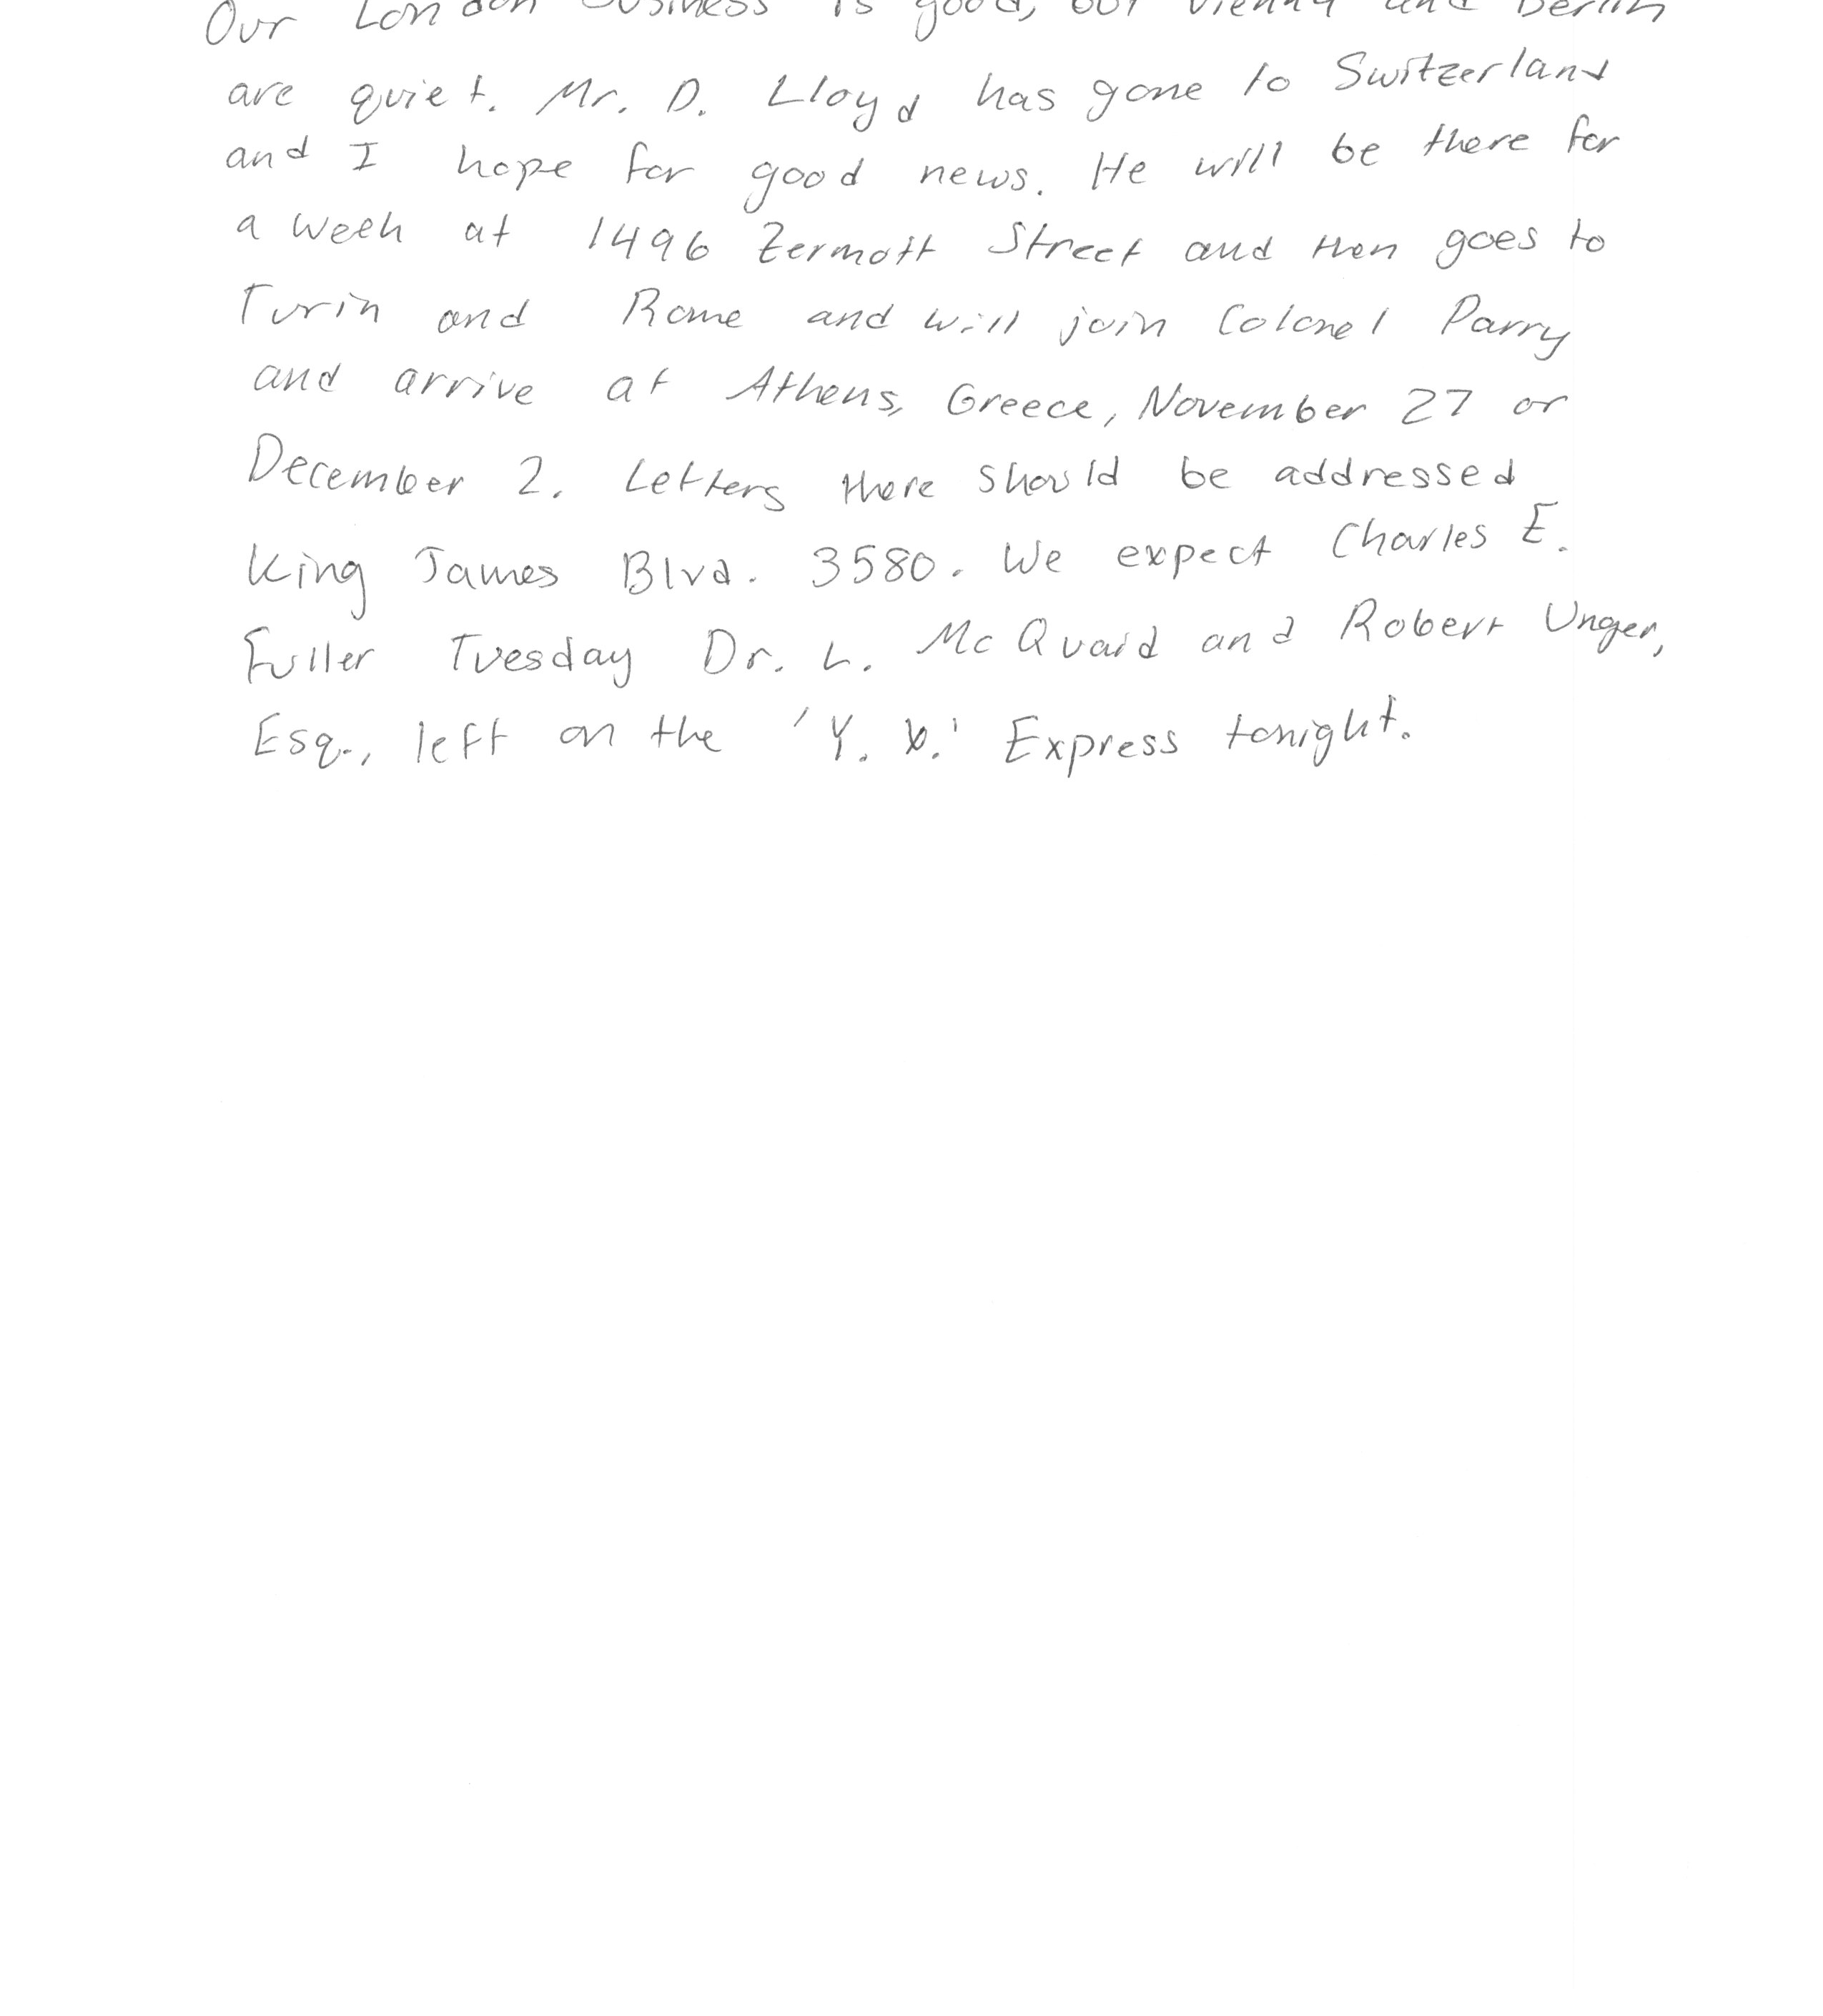 Our London business is good, but Vienna and Berlin
are quiet. Mr. D. Lloyd has gone to Switzerland
and I hope for good news. He will be there for
a week at 1496 Zermott Street and then goes to
Turin and Rome and will join Colonel Parry
and arrive at Athens, Greece, November 27 or
December 2. Letters there should be addressed
King James Blvd. 3580. We expect Charles E.
Fuller Tuesday Dr. L. McQuaid and Robert Unger,
Esq., left on the 'Y. X.' Express tonight.